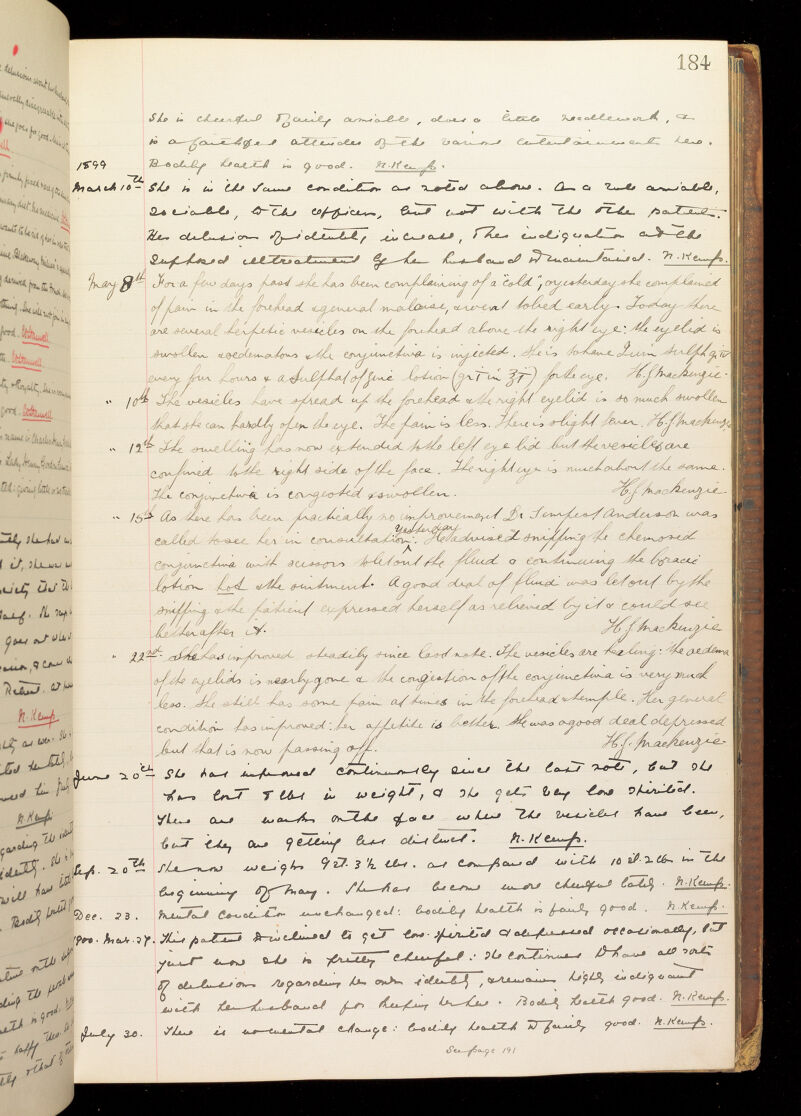 184
She is cheerful & fairly amiable, does a little needlework, &
is a faithful attender of the various entertainments here.
1899 Bodily health is good. N. Kemp.
March 10th She is in the same condition as noted above. As a rule amiable,
sociable, to the officers, but not with the other patients.
Her delusions of identity increase, & her indignation at the
supposed illtreatment of her husband is maintained. N. Kemp.
May 8th For a few days past she has been complaining of a "cold", or yesterday she complained
of pain in the forehead & general malaise, & went to bed early. Today there
are several herpetic vesicles on the forehead above the right eye: the eyelid is
swollen & oedematous & the conjunctiva is injected. She is to have Quin Sulph gr IV
every four hours & a Sulphat of Zinc lotion (gr I in ℥ I) for the eye. H.J. Mackenzie
" 10th The vesicles have spread up the forehead & the right eyelid is so much swollen
that she can hardly open the eye. The pain is less. There is slight fever. H.J. Mackenzie
" 12th The swelling has now extended to the left eye lid but the vesicles are
confined to the right side of the face. The right eye is much about the same.
The conjunctiva is congested & swollen. H.J. Mackenzie
" 15th As there has been practically no improvement Dr. Tempest Anderson was
called to see her in consultation yesterday. He advised snipping the chemosed
conjunctiva with scissors to let out the fluid & continuing the boracic
lotion hot & the ointment. A good deal of fluid was let out by the
snipping & the patient expressed herself as relieved by it & could see
better after it. H.J. Mackenzie
" 22nd She has improved steadily since last note. The vesicles are healing: the oedema
of the eyelids is nearly gone & the congestion of the conjunctiva is very much
less. She still has some pain at times in the forehead & temple. Her general
condition has improved: her appetite is better. She was a good deal depressed
but that is now passing off. H.J. Mackenzie
June 20th She has improved continuously since the last note, but she
has lost 8 lbs in weight, & she gets very low spirited.
There are marks on the face where the vesicles have been,
but they are getting less distinct. N. Kemp.
Sep. 20th She now weighs 9 st. 3½ lbs. as compared with 10 st. 2 lbs in the
beginning of May. She has become more cheerful lately. N. Kemp.
Dec. 23. Mental condition unchanged: bodily health is fairly good. N. Kemp.
1900. Mar. 27. This patient is inclined to get low-spirited & depressed occasionally, but
just now she is pretty cheerful: she continues to have all sorts
of delusions regarding her own identity, & remains highly indignant
with her husband for keeping her here. Bodily health good. N. Kemp.
July 30. There is no mental change: bodily health is fairly good. N. Kemp.
See page 191